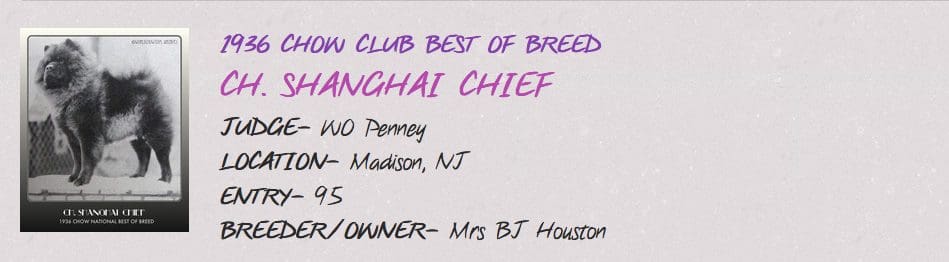 1936 CHOW CLUB BEST OF BREED
CH. SHANGHAI CHIEF
JUDGE- WO Penney
LOCATION- Madison, NJ
ENTRY- 95
BREEDER/OWNER- Mrs BJ Houston
CH. SHANGHAI CHIEF
1936 CHOW NATIONAL BEST OF BREED